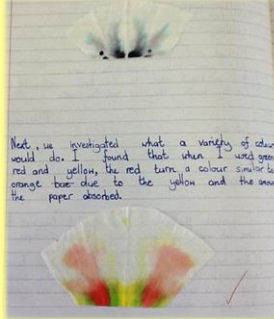 Next, we investigated what a variety of colour
would do. I found that when I used green
red and yellow, the red turn a colour similar to
orange due to the yellow and the
the paper absorbed.